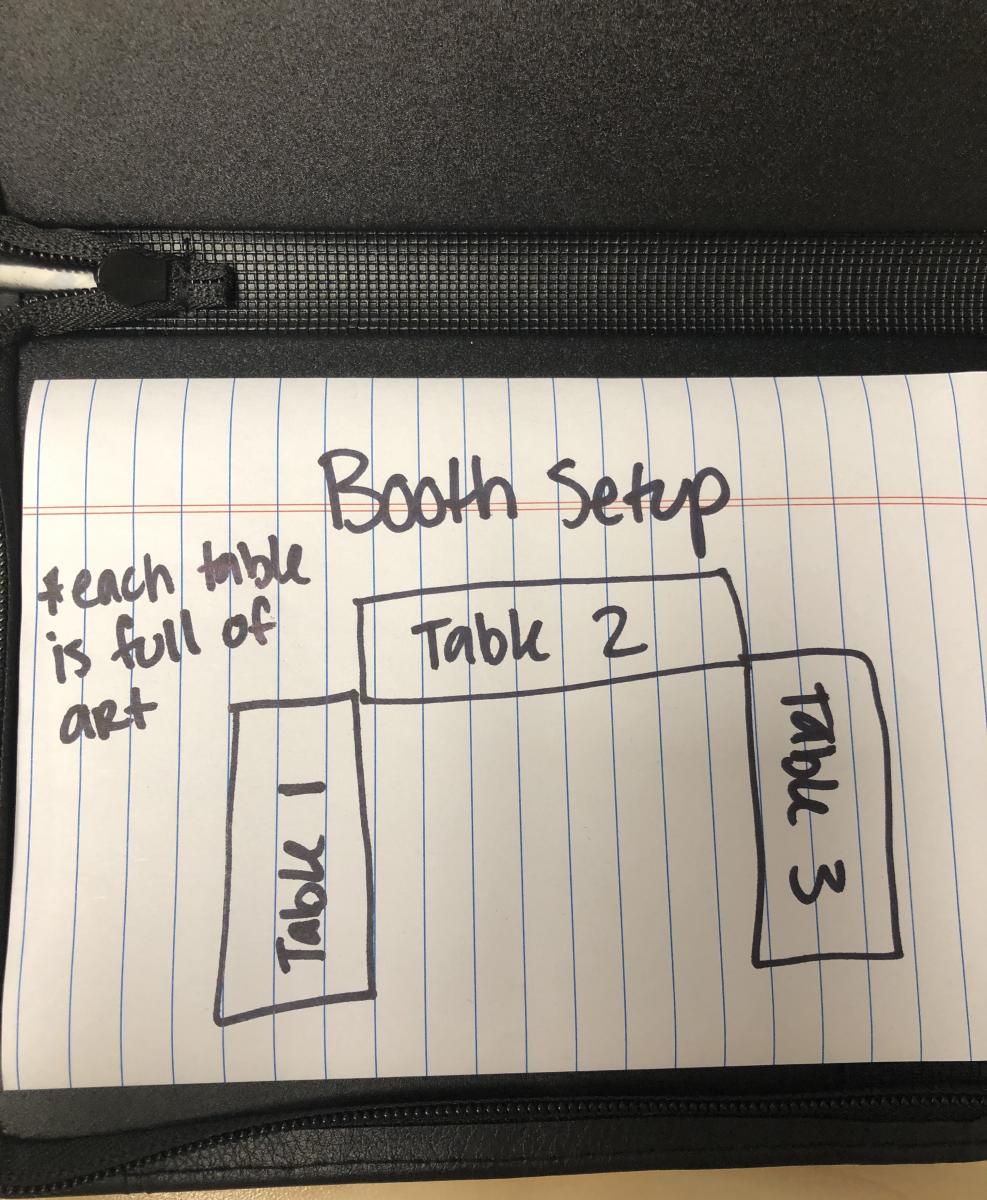 Booth Setup
*each table
is full of
art
Table 2
Table 1
Table 3